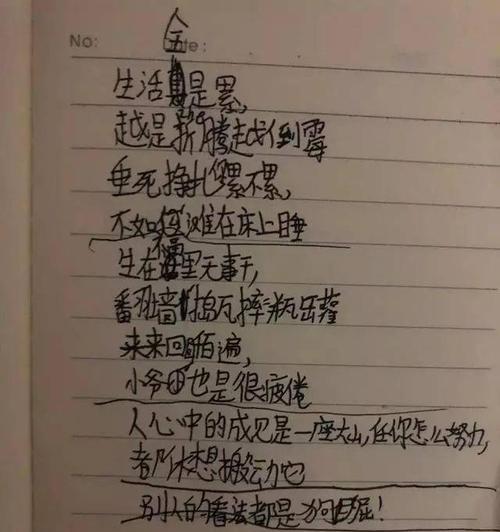 No:
生活是累,
越是折腾越倒霉
垂死挣扎累不累,
不如瘫在床上睡
生在里无事干,
翻墙捣瓦摔瓶罐
来来回百遍,
小爷也是很疲倦
人心中的成见是一座大山,任你怎么努力,
都休想搬动它
别人的看法都是狗屁!